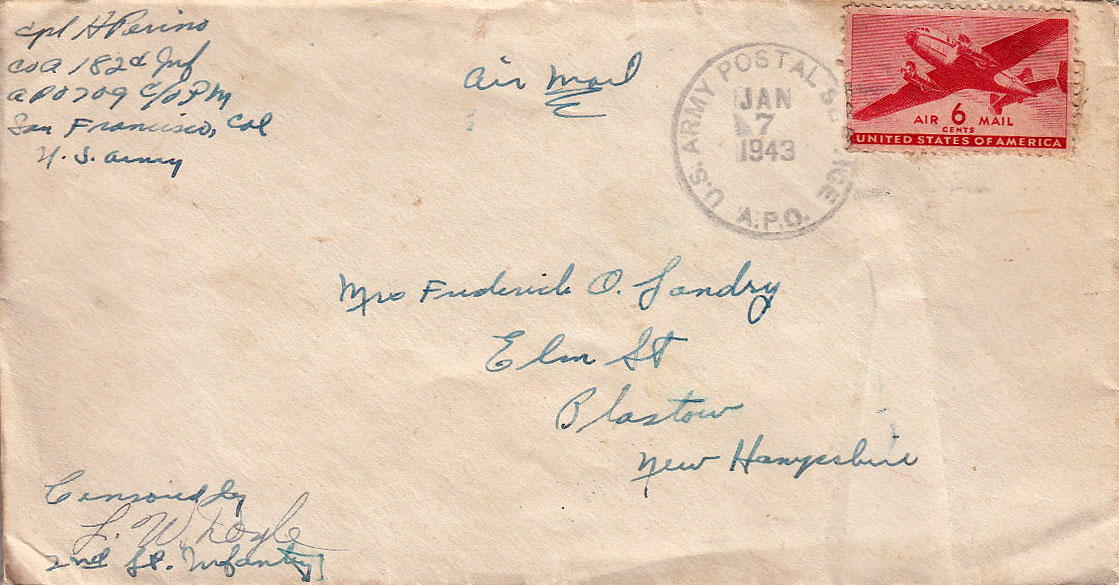 Cpl H Perino
Co A 182d Inf
APO 709 C/O PM
San Francisco, Cal
U. S. Army
Air Mail
U.S. ARMY POSTAL SERVICE
JAN
7
1943
A.P.O.
AIR 6 MAIL
CENTS
UNITED STATES OF AMERICA
Mrs Frederick O. Landry
Elm St
Plastow
New Hampshire
Censored by
L. W. Doyle
2nd Lt. Infantry